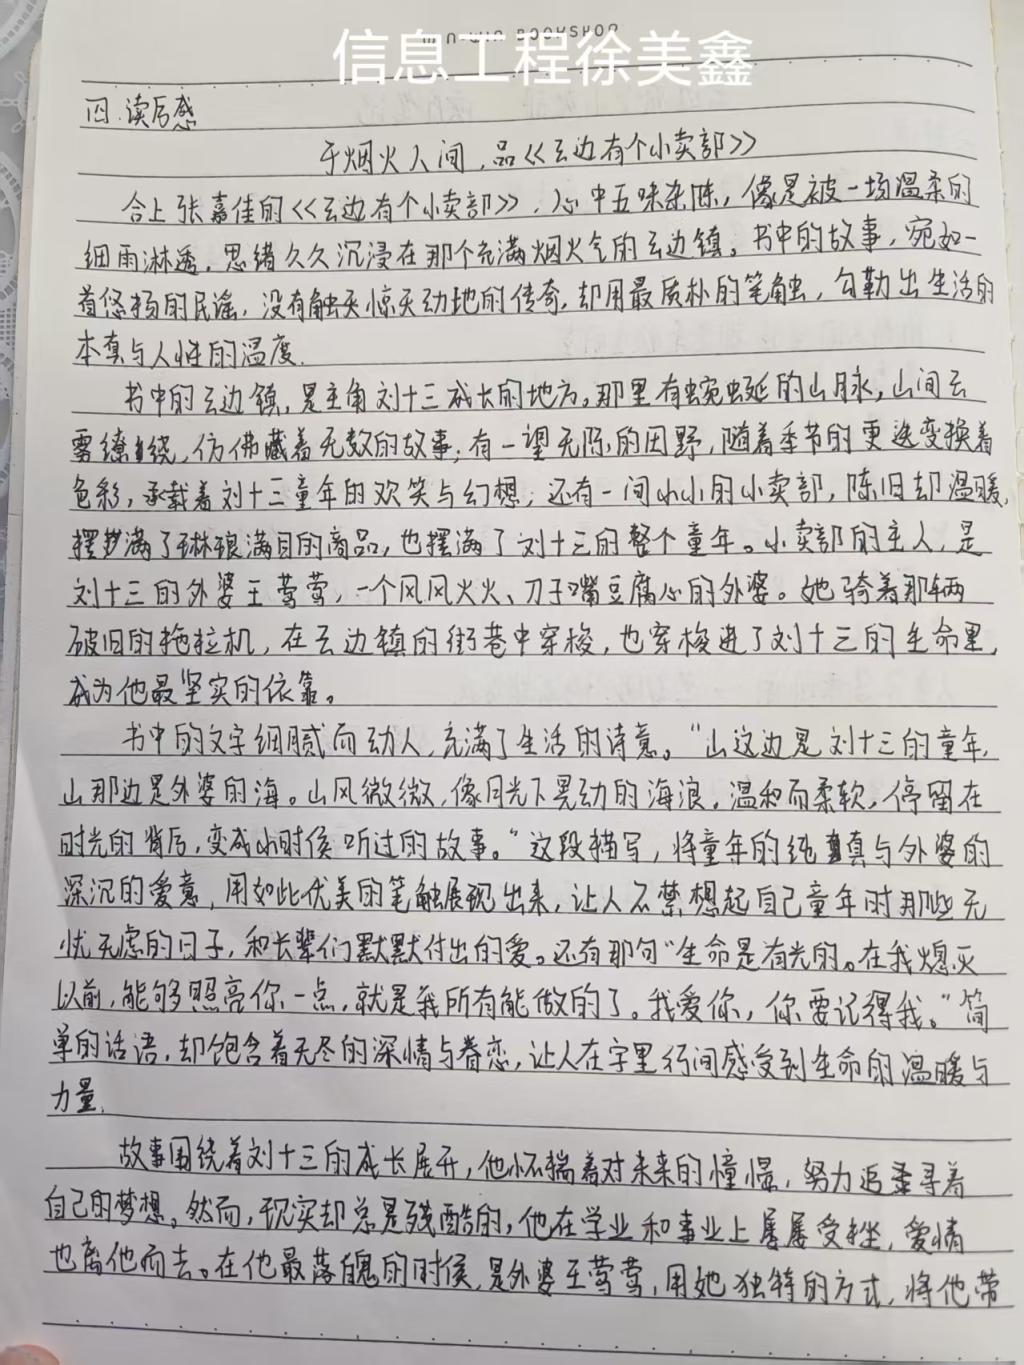 WIN-WIN BOOKSHOP
信息工程徐美鑫
四.读后感
于烟火人间,品《云边有个小卖部》
合上张嘉佳的《云边有个小卖部》,心中五味杂陈,像是被一场温柔的
细雨淋透,思绪久久沉浸在那个充满烟火气的云边镇。书中的故事,宛如一
首悠扬的民谣,没有触天惊天动地的传奇,却用最质朴的笔触,勾勒出生活的
本真与人性的温度.
书中的云边镇,是主角刘十三成长的地方。那里有蜿蜒的山脉,山间云
雾缭绕,仿佛藏着无数的故事;有一望无际的田野,随着季节的更迭变换着
色彩,承载着刘十三童年的欢笑与幻想;还有一间小小的小卖部,陈旧却温暖,
摆满了琳琅满目的商品,也摆满了刘十三的整个童年。小卖部的主人,是
刘十三的外婆王莺莺,一个风风火火、刀子嘴豆腐心的外婆。她骑着那辆
破旧的拖拉机,在云边镇的街巷中穿梭,也穿梭进了刘十三的生命里,
成为他最坚实的依靠。
书中的文字细腻而动人,充满了生活的诗意。"山这边是刘十三的童年,
山那边是外婆的海。山风微微,像月光下晃动的海浪,温和而柔软,停留在
时光的背后,变成小时候听过的故事。"这段描写,将童年的纯真与外婆的
深沉的爱意,用如此优美的笔触展现出来,让人不禁想起自己童年时那些无
忧无虑的日子,和长辈们默默付出的爱。还有那句"生命是有光的。在我熄灭
以前,能够照亮你一点,就是我所有能做的了。我爱你,你要记得我。"简
单的话语,却饱含着无尽的深情与眷恋,让人在字里行间感受到生命的温暖与
力量.
故事围绕着刘十三的成长展开,他怀揣着对未来的憧憬,努力追寻着
自己的梦想。然而,现实却总是残酷的,他在学业和事业上屡屡受挫,爱情
也离他而去。在他最落魄的时候,是外婆王莺莺,用她独特的方式,将他带